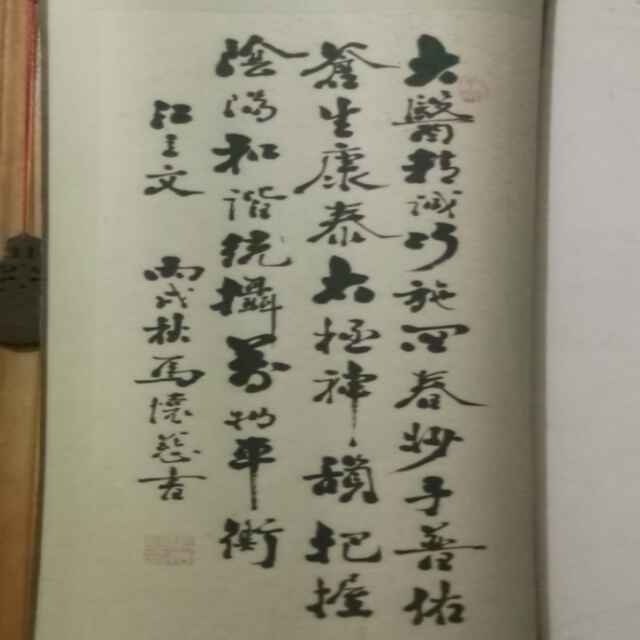 大醫精誠巧施回春妙手善佑
蒼生康泰太極神韻把握
陰陽和諧統攝萬物平衡
江文 丙戌秋馬書